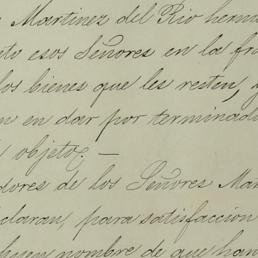 Martinez del Rio herm
esos Señores en la fra
los bienes que les resten, y
en dar por terminad
objeto, —
dores de los Señores Mar
claran, para satisfaccion
buen nombre de que han